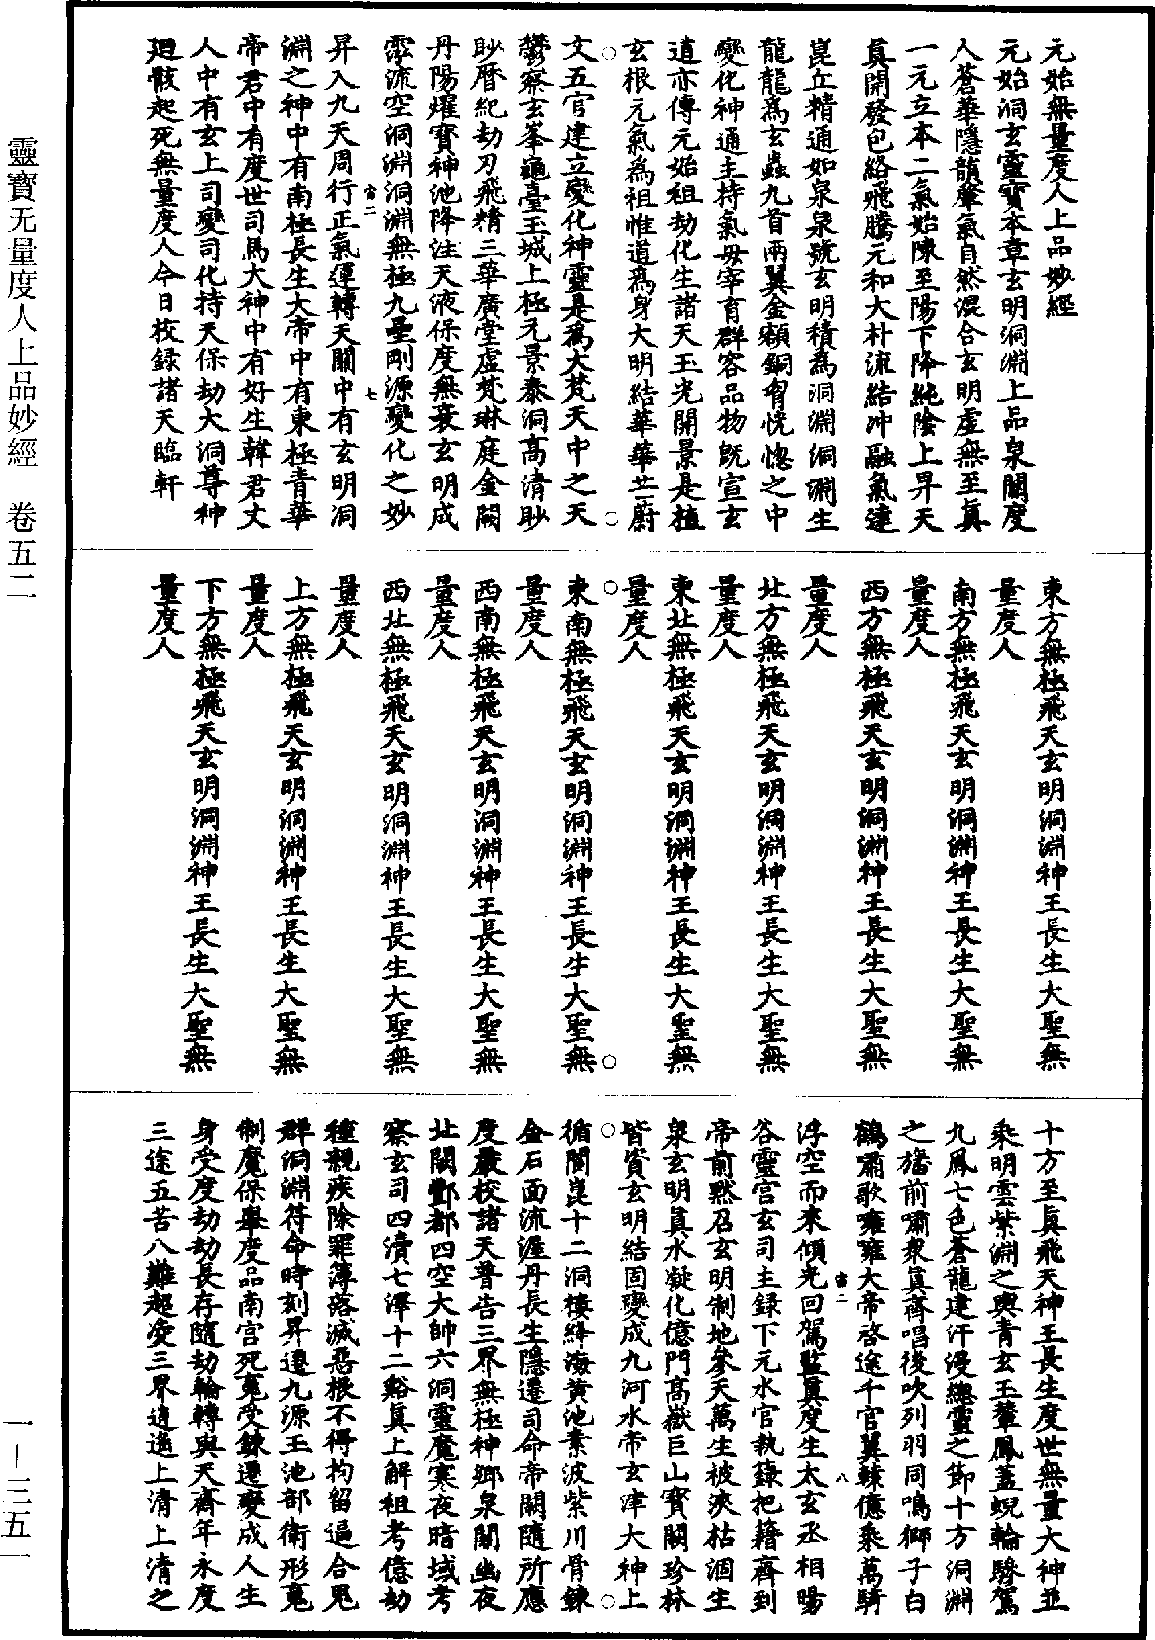 元始無量度人上品妙經
元始洞玄靈寶本章玄明洞淵上品泉關度
人蒼華隱龍肇氣自然混合玄明虛無至真
一元立本二氣始陳至陽下降純陰上昇天
真開發包絡飛騰元和大朴流結沖融氣達
崑丘精通如泉泉號玄明積為洞淵洞淵生
龍龍為玄蟲九首兩翼金顙銅胷恍惚之中
變化神通主持氣母宰育群容品物既宣玄
道亦傳元始祖劫化生諸天玉光開景是植
玄根元氣為祖惟道為身大明結華華芒蔚
文五官建立變化神靈是為大梵天中之天
鬱察玄峯龜臺玉城上極元景泰洞高清眇
眇曆紀劫刀飛精三華廣堂虛梵琳庭金闕
丹陽耀寶神池降注天液保度無衰玄明成
流空洞淵洞淵無極九壘剛源變化之妙
宙二 七
昇入九天周行正氣運轉天關中有玄明洞
淵之神中有南極長生大帝中有東極青華
帝君中有度世司馬大神中有好生韓君丈
人中有玄上司變司化持天保劫大洞尊神
廻骸起死無量度人今日校錄諸天臨軒
東方無極飛天玄明洞淵神王長生大聖無
量度人
南方無極飛天玄明洞淵神王長生大聖無
量度人
西方無極飛天玄明洞淵神王長生大聖無
量度人
北方無極飛天玄明洞淵神王長生大聖無
量度人
東北無極飛天玄明洞淵神王長生大聖無
量度人
東南無極飛天玄明洞淵神王長生大聖無
量度人
西南無極飛天玄明洞淵神王長生大聖無
量度人
西北無極飛天玄明洞淵神王長生大聖無
量度人
上方無極飛天玄明洞淵神王長生大聖無
量度人
下方無極飛天玄明洞淵神王長生大聖無
量度人
十方至真飛天神王長生度世無量大神並
乘明雲紫淵之輿青玄玉輦鳳蓋蜺輪驂駕
九鳳七色蒼龍建汗漫總靈之節十方洞淵
之旛前嘯衆真齊唱後吹列羽同鳴獅子白
鶴嘯歌嗈嗈大帝啓途千官翼轅億乘萬騎
浮空而來傾光回駕監真度生太玄丞相暘
宙二 八
谷靈官玄司主錄下元水官執籙把籍齊到
帝前黙召玄明制地參天萬生被浹枯涸生
泉玄明真水凝化億門高嶽巨山寶闕珍林
皆資玄明結固變成九河水帝玄津大神上
循閬崑十二洞樓絳海黃池素波紫川骨鍊
金石面流渥丹長生隱遷司命帝關隨所應
度嚴校諸天普告三界無極神鄉泉關幽夜
北關酆都四空大帥六洞靈魔寒夜暗域考
察玄司四瀆七澤十二谿真上解祖考億劫
種親疾除罪簿落滅惡根不得拘留逼合鬼
群洞淵符命時刻昇遷九源玉池部衛形䰟
制魔保舉度品南宫死䰟受鍊還變成人生
身受度劫劫長存隨劫輪轉與天齊年永度
三途五苦八難超凌三界逍遙上清上清之
靈寶无量度人上品妙經 卷五二
一—三五一